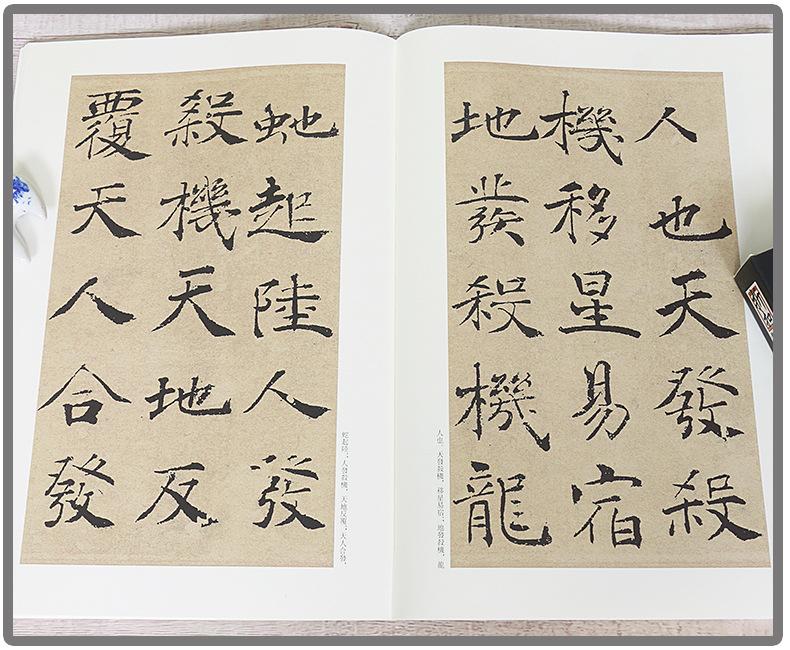 人也天發殺
機移星易宿
地發殺機龍
人也。天發殺機，移星易宿；地發殺機，龍
蛇起陸；人發殺機，天地反覆；天人合發，
虵起陸人發
殺機天地反
覆天人合發